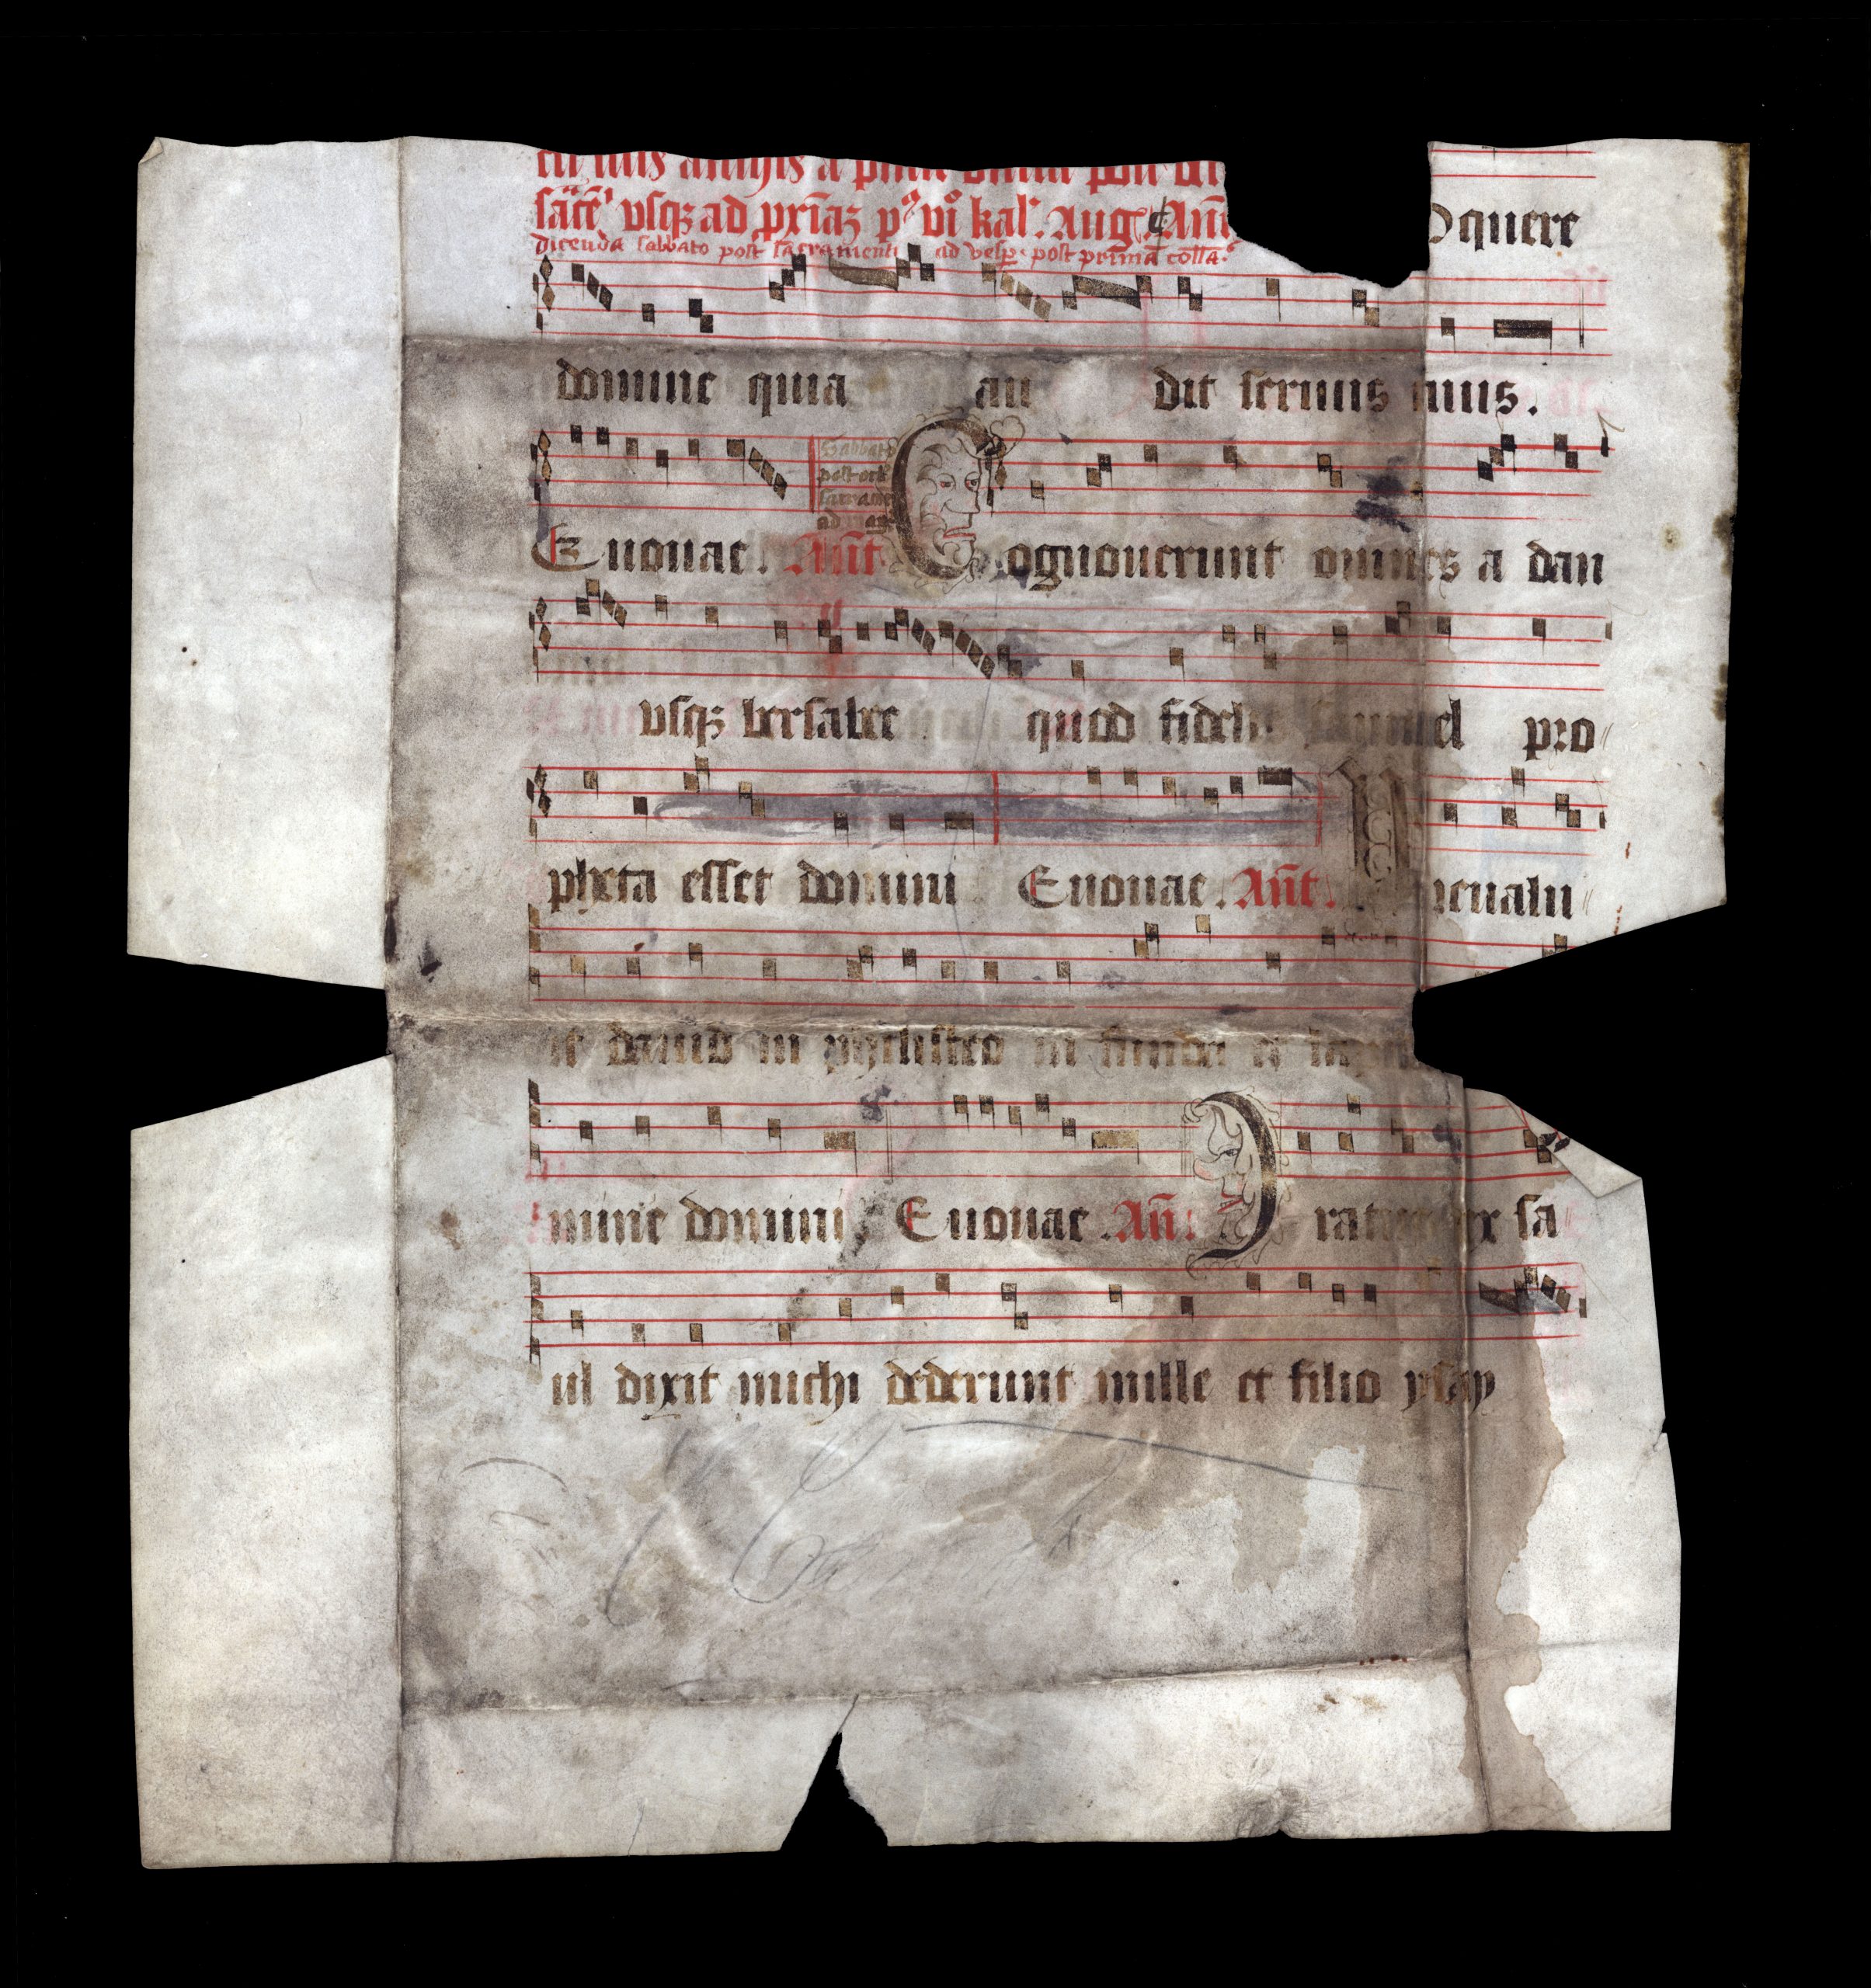 sacr̄e vsqꝫ ad pxīaꝫ pꝰ vi kal'. Aug. Añ
oquere
dicenda sabbato post sacramenti ad vesp. post primā colla.
domine quia au dit seruus tuus.
Sabbato
post oct
sacrame
ad mag
Euouae. Añt Cognouerunt omnes a dan
vsqꝫ bersabee quod fidelis samuel pro
pheta esset domini Euouae. Añt. Preualu
it dauid in phylisteo in funda et lap
nomine domini. Euouae. Añ. Iratus rex sa
ul dixit michi dederunt mille et filio ysay